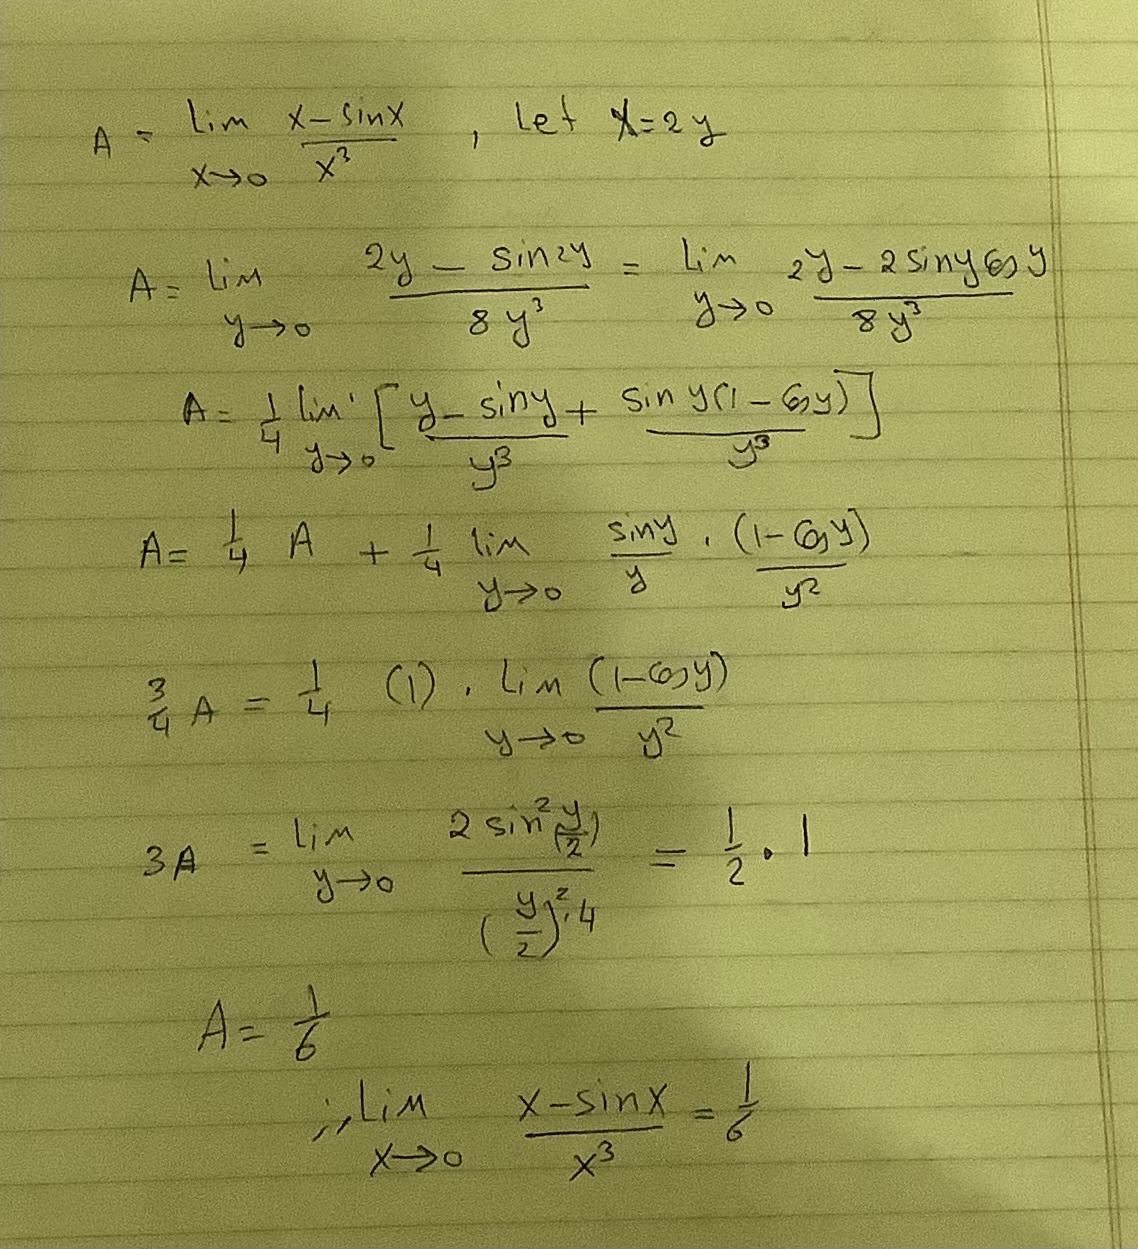 A = lim x→0 (x - sinx)/x³ , Let x=2y
A = lim y→0 (2y - sin2y)/(8y³) = lim y→0 (2y - 2 siny cosy)/(8y³)
A = 1/4 lim y→0 [(y - siny)/y³ + (siny(1 - cosy))/y³]
A = 1/4 A + 1/4 lim y→0 siny/y . (1 - cosy)/y²
3/4 A = 1/4 (1) . lim y→0 (1 - cosy)/y²
3A = lim y→0 (2 sin²(y/2))/((y/2)².4) = 1/2 . 1
A = 1/6
∴ lim x→0 (x - sinx)/x³ = 1/6